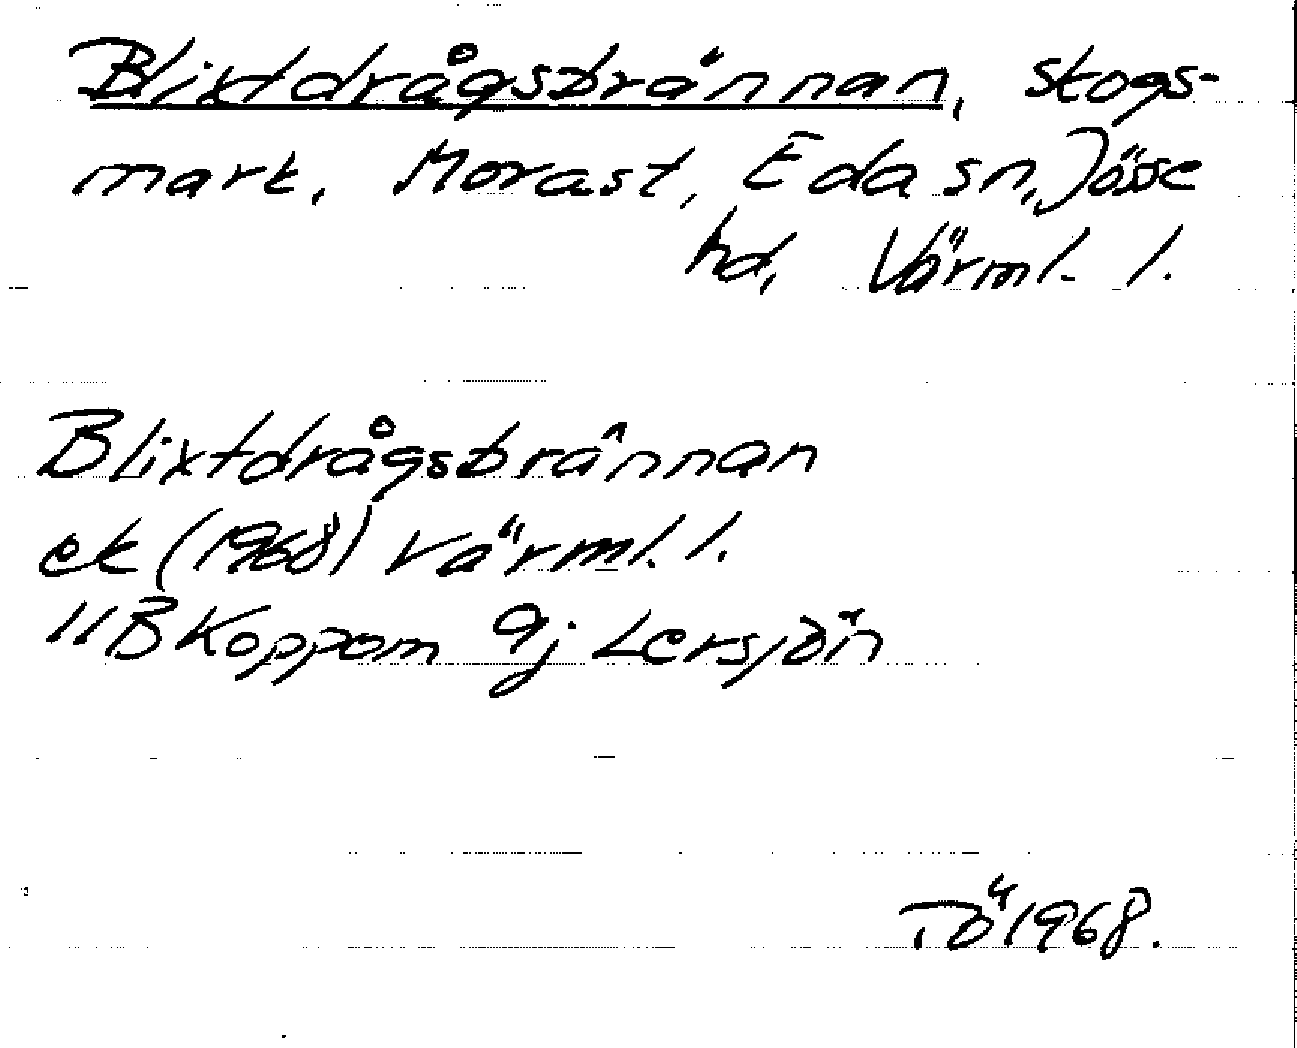 Blixtdrågsbrännan, skogs-
mark, Morast, Eda sn, Jösse
hd, Värml. l.
Blixtdrågsbrännan
ek (1968) Värml. l.
11B Koppom 9j Lersjön
TÖ 1968.